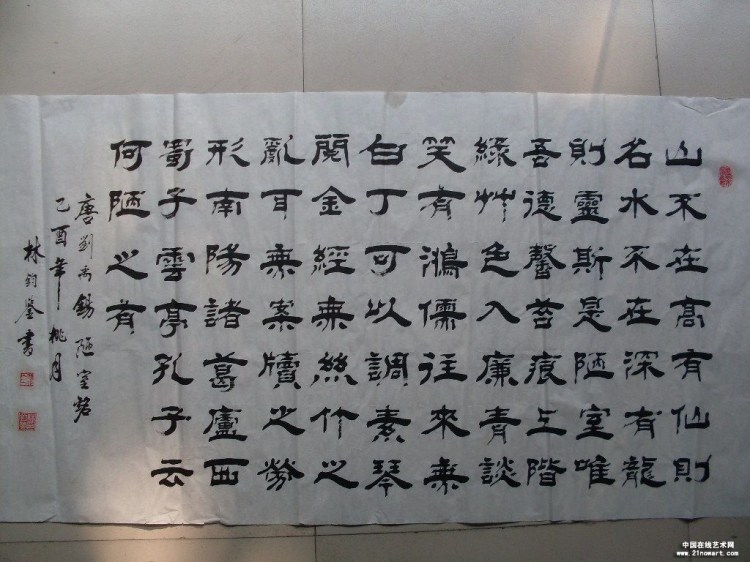 山不在高有仙則
名水不在深有龍
則靈斯是陋室唯
吾德馨苔痕上階
綠艸色入廉青談
笑有鴻儒往來無
白丁可以調素琴
閱金經無絲竹之
亂耳無案牘之勞
形南陽諸葛廬西
蜀子雲亭孔子云
何陋之有
唐劉禹錫陋室銘
乙酉年桃月
林鈞書
中国在线艺术网
www.21nowart.com